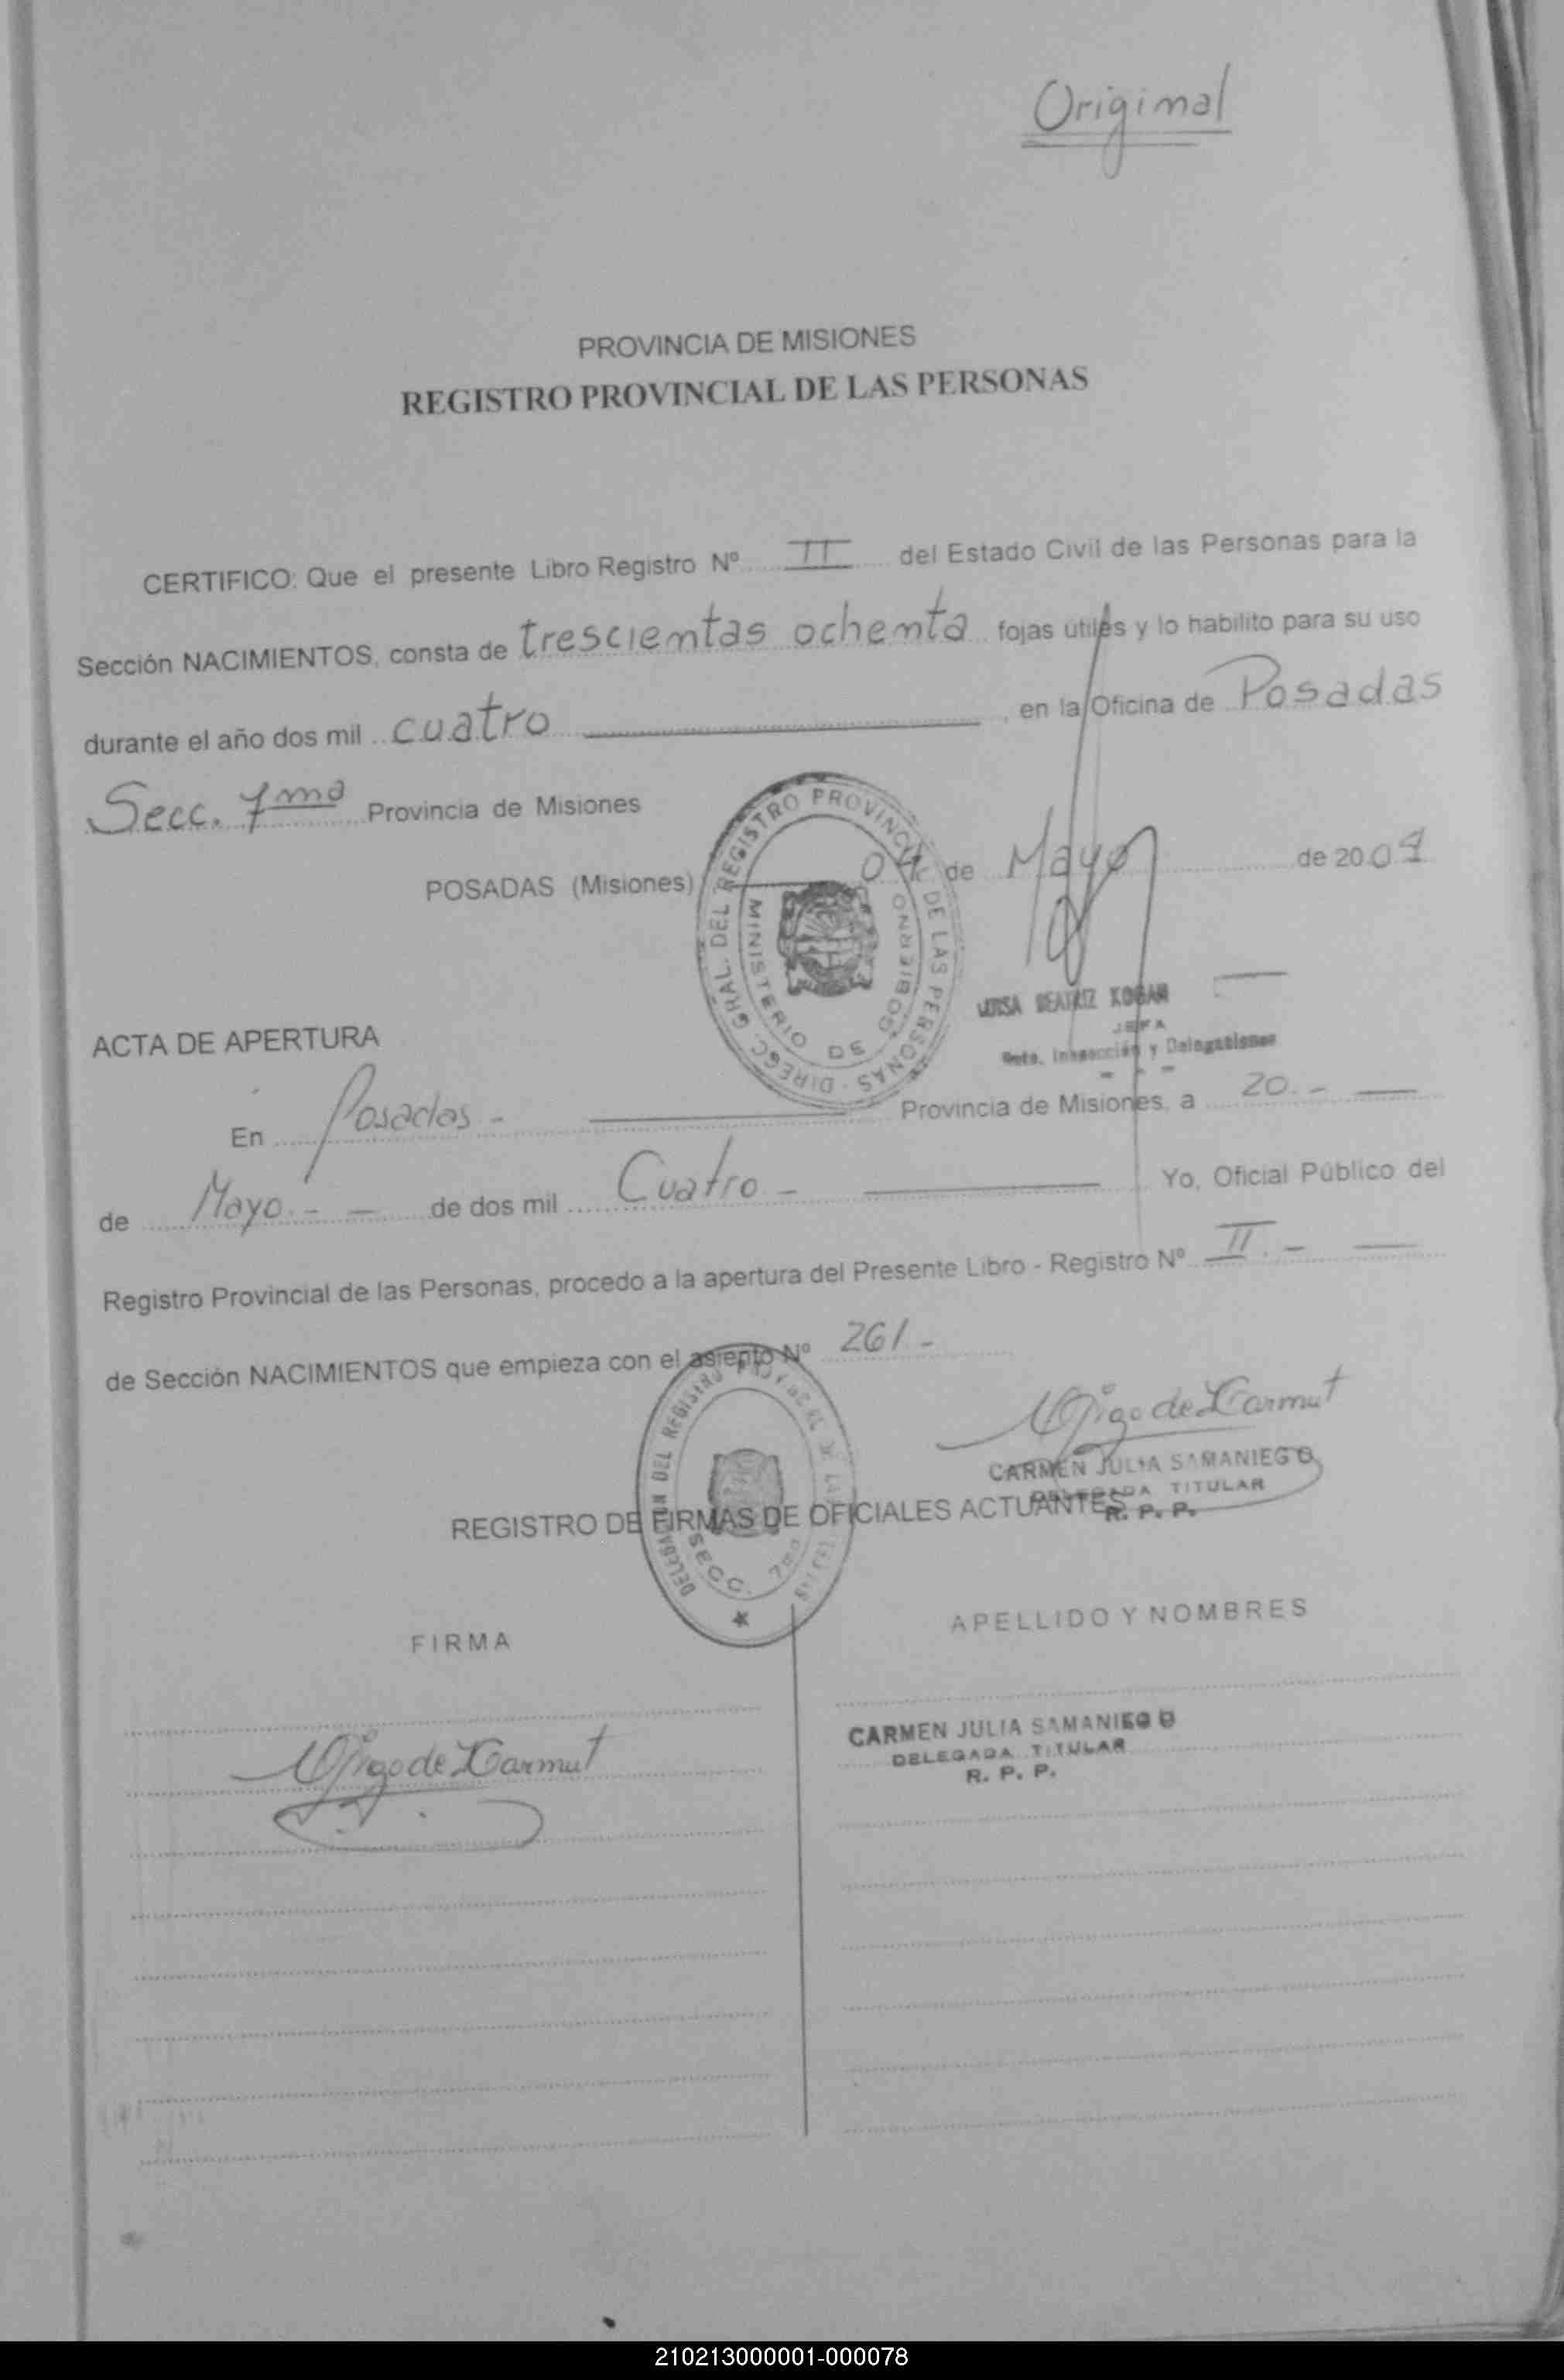 Original
PROVINCIA DE MISIONES
REGISTRO PROVINCIAL DE LAS PERSONAS
CERTIFICO: Que el presente Libro Registro Nº II del Estado Civil de las Personas para la
Sección NACIMIENTOS, consta de trescientas ochenta fojas útiles y lo habilito para su uso
durante el año dos mil cuatro, en la Oficina de Posadas
Secc. 7ma Provincia de Misiones
POSADAS (Misiones) 04 de Mayo de 2004
DIREGC. GRAL. DEL REGISTRO PROVINCIAL DE LAS PERSONAS
MINISTERIO DE GOBIERNO
LUISA BEATRIZ KOGAN
JEFA
Dpto. Inspección y Delegaciones
ACTA DE APERTURA
En Posadas - Provincia de Misiones, a 20.-
de Mayo.- - de dos mil Cuatro - Yo, Oficial Público del
Registro Provincial de las Personas, procedo a la apertura del Presente Libro - Registro Nº II.-
de Sección NACIMIENTOS que empieza con el asiento Nº 261-
DELEGACION DEL REGISTRO PROVINCIAL DE LAS
SECC. 7ma
CARMEN JULIA SAMANIEGO
DELEGADA TITULAR
R. P. P.
REGISTRO DE FIRMAS DE OFICIALES ACTUANTES
FIRMA
APELLIDO Y NOMBRES
CARMEN JULIA SAMANIEGO
DELEGADA TITULAR
R. P. P.
210213000001-000078